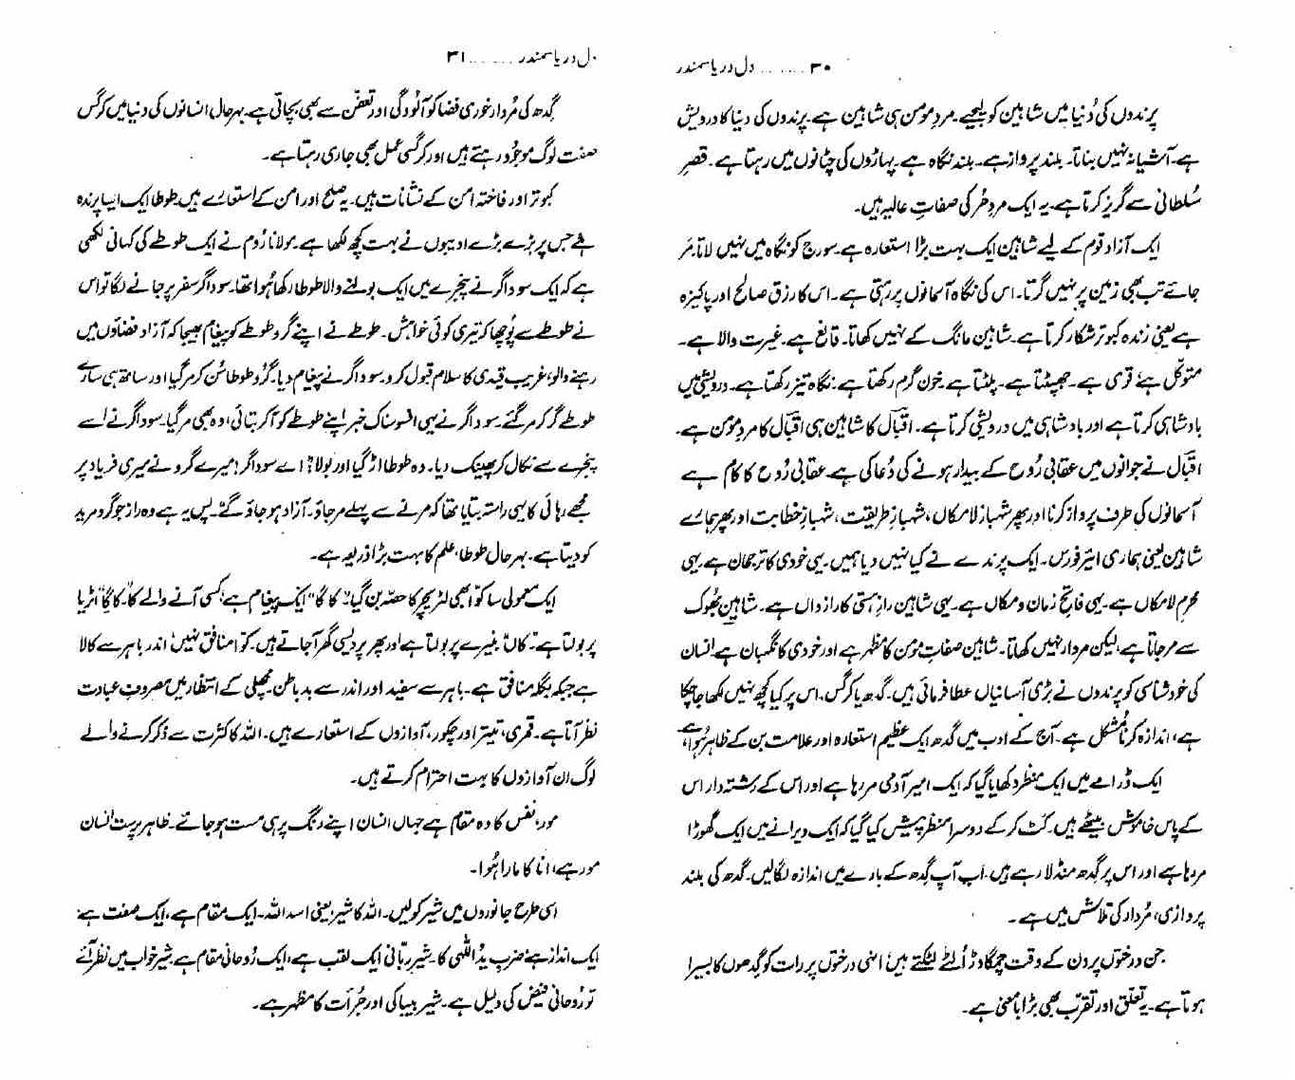 ۳۰ ........ دل دریا سمندر
پرندوں کی دُنیا میں شاہین کو لیجیے۔ مردِ مومن ہی شاہین ہے۔ پرندوں کی دنیا کا درویش
ہے۔ آشیانہ نہیں بناتا۔ بلند پرواز ہے۔ بلند نگاہ ہے۔ پہاڑوں کی چٹانوں میں رہتا ہے۔ قصرِ
سُلطانی سے گریز کرتا ہے۔ یہ ایک مردِ حُر کی صفاتِ عالیہ ہیں۔
ایک آزاد قوم کے لیے شاہین ایک بہت بڑا استعارہ ہے۔ سورج کو نگاہ میں نہیں لاتا۔ مَر
جائے تب بھی زمین پر نہیں گرتا۔ اس کی نگاہ آسمانوں پر رہتی ہے۔ اس کا رزق صالح اور پاکیزہ
ہے یعنی زندہ کبوتر شکار کرتا ہے۔ شاہین مانگ کے نہیں کھاتا۔ قانع ہے۔ غیرت والا ہے۔
متوکّل ہے، قوی ہے۔ جھپٹتا ہے۔ پلٹتا ہے۔ خون گرم رکھتا ہے، نگاہ تیز رکھتا ہے۔ درویشی میں
بادشاہی کرتا ہے اور بادشاہی میں درویشی کرتا ہے۔ اقبالؔ کا شاہین ہی اقبالؔ کا مردِ مومن ہے۔
اقبالؔ نے جوانوں میں عقابی رُوح کے بیدار ہونے کی دُعا کی ہے۔ عقابی رُوح کا کام ہے
آسمانوں کی طرف پرواز کرنا اور پھر شہبازِ لامکاں، شہبازِ طریقت، شہبازِ خطابت اور پھر ہمارے
شاہین یعنی ہماری ائیر فورس۔ ایک پرندے نے کیا نہیں دیا ہمیں۔ یہی خودی کا ترجمان ہے۔ یہی
محرمِ لامکاں ہے۔ یہی فاتحِ زمان و مکاں ہے۔ یہی شاہین رازِ ہستی کا رازداں ہے۔ شاہین بھُوک
سے مر جاتا ہے، لیکن مردار نہیں کھاتا۔ شاہین صفاتِ مومن کا مظہر ہے اور خودی کا نگہبان ہے۔ انسان
کی خود شناسی کو پرندوں نے بڑی آسانیاں عطا فرمائی ہیں۔ گدھ یا کرگس۔ اس پر کیا کچھ نہیں لکھا جا چکا
ہے، اندازہ کرنا مُشکل ہے۔ آج کے ادب میں گدھ ایک عظیم استعارہ اور علامت بن کے ظاہر ہُوا ہے۔
ایک ڈرامے میں ایک منظر دکھایا گیا کہ ایک امیر آدمی مر رہا ہے اور اس کے رشتہ دار اس
کے پاس خاموش بیٹھے ہیں۔ کَٹ کر کے دوسرا منظر پیش کیا گیا کہ ایک ویرانے میں ایک گھوڑا
مر رہا ہے اور اس پر گِدھ منڈلا رہے ہیں۔ اب آپ گِدھ کے بارے میں اندازہ لگا لیں۔ گدھ کی بلند
پروازی، مُردار کی تلاش میں ہے۔
جن درختوں پر دن کے وقت چمگادڑ اُلٹے لٹکتے ہیں، انہی درختوں پر رات کو گِدھوں کا بسیرا
ہوتا ہے۔ یہ تعلق اور تقرّب بھی بڑا بامعنی ہے۔
دل دریا سمندر ........ ۳۱
گِدھ کی مُردار خوری فضا کو آلودگی اور تعفّن سے بھی بچاتی ہے۔ بہرحال انسانوں کی دنیا میں کرگس
صفت لوگ موجُود رہتے ہیں اور کرگسی عمل بھی جاری رہتا ہے۔
کبوتر اور فاختہ امن کے نشانات ہیں۔ یہ صلح اور امن کے استعارے ہیں۔ طوطا ایک ایسا پرندہ
ہے جس پر بڑے بڑے ادیبوں نے بہت کچھ لکھا ہے۔ مولانا رُوم نے ایک طوطے کی کہانی لکھی
ہے کہ ایک سوداگر نے پنجرے میں ایک بولنے والا طوطا رکھا ہُوا تھا۔ سوداگر سفر پر جانے لگا تو اس
نے طوطے سے پُوچھا کہ تیری کوئی خواہش۔ طوطے نے اپنے گرو طوطے کو پیغام بھیجا کہ آزاد فضاؤں میں
رہنے والو، غریب قیدی کا سلام قبول کرو۔ سوداگر نے پیغام دیا۔ گرو طوطا سُن کر مر گیا اور ساتھ ہی سارے
طوطے گر کر مر گئے۔ سوداگر نے یہی افسوسناک خبر اپنے طوطے کو آکر بتائی، وہ بھی مر گیا۔ سوداگر نے اُسے
پنجرے سے نکال کر پھینک دیا۔ وہ طوطا اڑ گیا اور بولا: اے سوداگر! میرے گرو نے میری فریاد پر
مجھے رہائی کا یہی راستہ بتایا تھا کہ مرنے سے پہلے مر جاؤ۔ آزاد ہو جاؤ گے۔ پس یہ ہے وہ راز جو گرو مرید
کو دیتا ہے۔ بہرحال طوطا، علم کا بہت بڑا ذریعہ ہے۔
ایک معمولی سا کوّا بھی لٹریچر کا حصّہ بن گیا۔ "کاگا" ایک پیغام ہے، کسی آنے والے کا۔ "کاگا" اٹریا
پر بولتا ہے۔ کاں بنیرے پر بولتا ہے اور پھر پردیسی گھر آ جاتے ہیں۔ کوّا منافق نہیں، اندر باہر سے کالا
ہے جبکہ بگلہ منافق ہے۔ باہر سے سفید اور اندر سے بدباطن۔ مچھلی کے انتظار میں مصروفِ عبادت
نظر آتا ہے۔ قمری، تیتر اور چکور، آوازوں کے استعارے ہیں۔ اللہ کا کثرت سے ذکر کرنے والے
لوگ ان آوازوں کا بہت احترام کرتے ہیں۔
مور، نفس کا وہ مقام ہے جہاں انسان اپنے رنگ پر ہی مست ہو جاتا ہے۔ ظاہر پرست انسان
مور ہے، انا کا مارا ہُوا۔
اسی طرح جانوروں میں شیر کو لیں۔ اللہ کا شیر یعنی اسد اللہ۔ ایک مقام ہے، ایک صفت ہے،
ایک انداز ہے، ضربِ یدُ اللّٰہی کا۔ شیرِ ربّانی ایک لقب ہے، ایک رُوحانی مقام ہے۔ شیر خواب میں نظر آئے
تو رُوحانی فیض کی دلیل ہے۔ شیر بیباکی اور جُرأت کا مظہر ہے۔